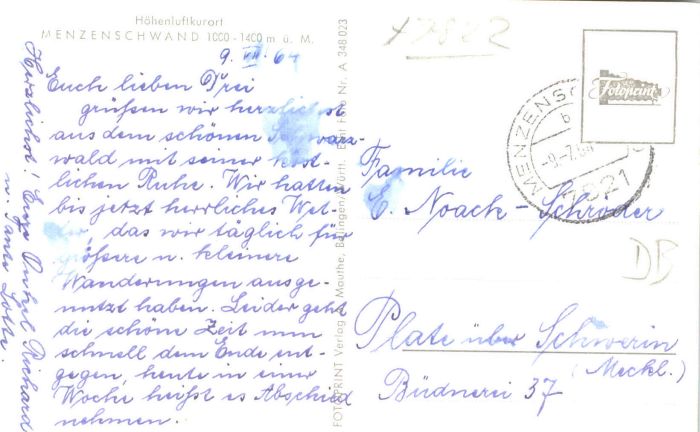 Höhenluftkurort
MENZENSCHWAND 1000-1400 m ü. M.
9. VII. 64
Euch lieben Drei
grüßen wir herzlichst
aus dem schönen Schwarz-
wald mit seiner köst-
lichen Ruhe. Wir hatten
bis jetzt herrliches Wet-
ter, das wir täglich für
größere u. kleinere
Wanderungen ausge-
nutzt haben. Leider geht
die schöne Zeit nun
schnell dem Ende ent-
gegen, heute in einer
Woche heißt es Abschied
nehmen.
Herzlichst! Euer Onkel Richard
u. Tante Lotte.
FOTOPRINT Verlag Mauthe, Balingen/Württ. Echt Foto Nr. A 348 023
Fotoprint
MENZENSCH
b
-9.-7.64
7821
Familie
E. Noack-Schröder
Plate über Schwerin
(Meckl.)
Büdnerei 37
DB